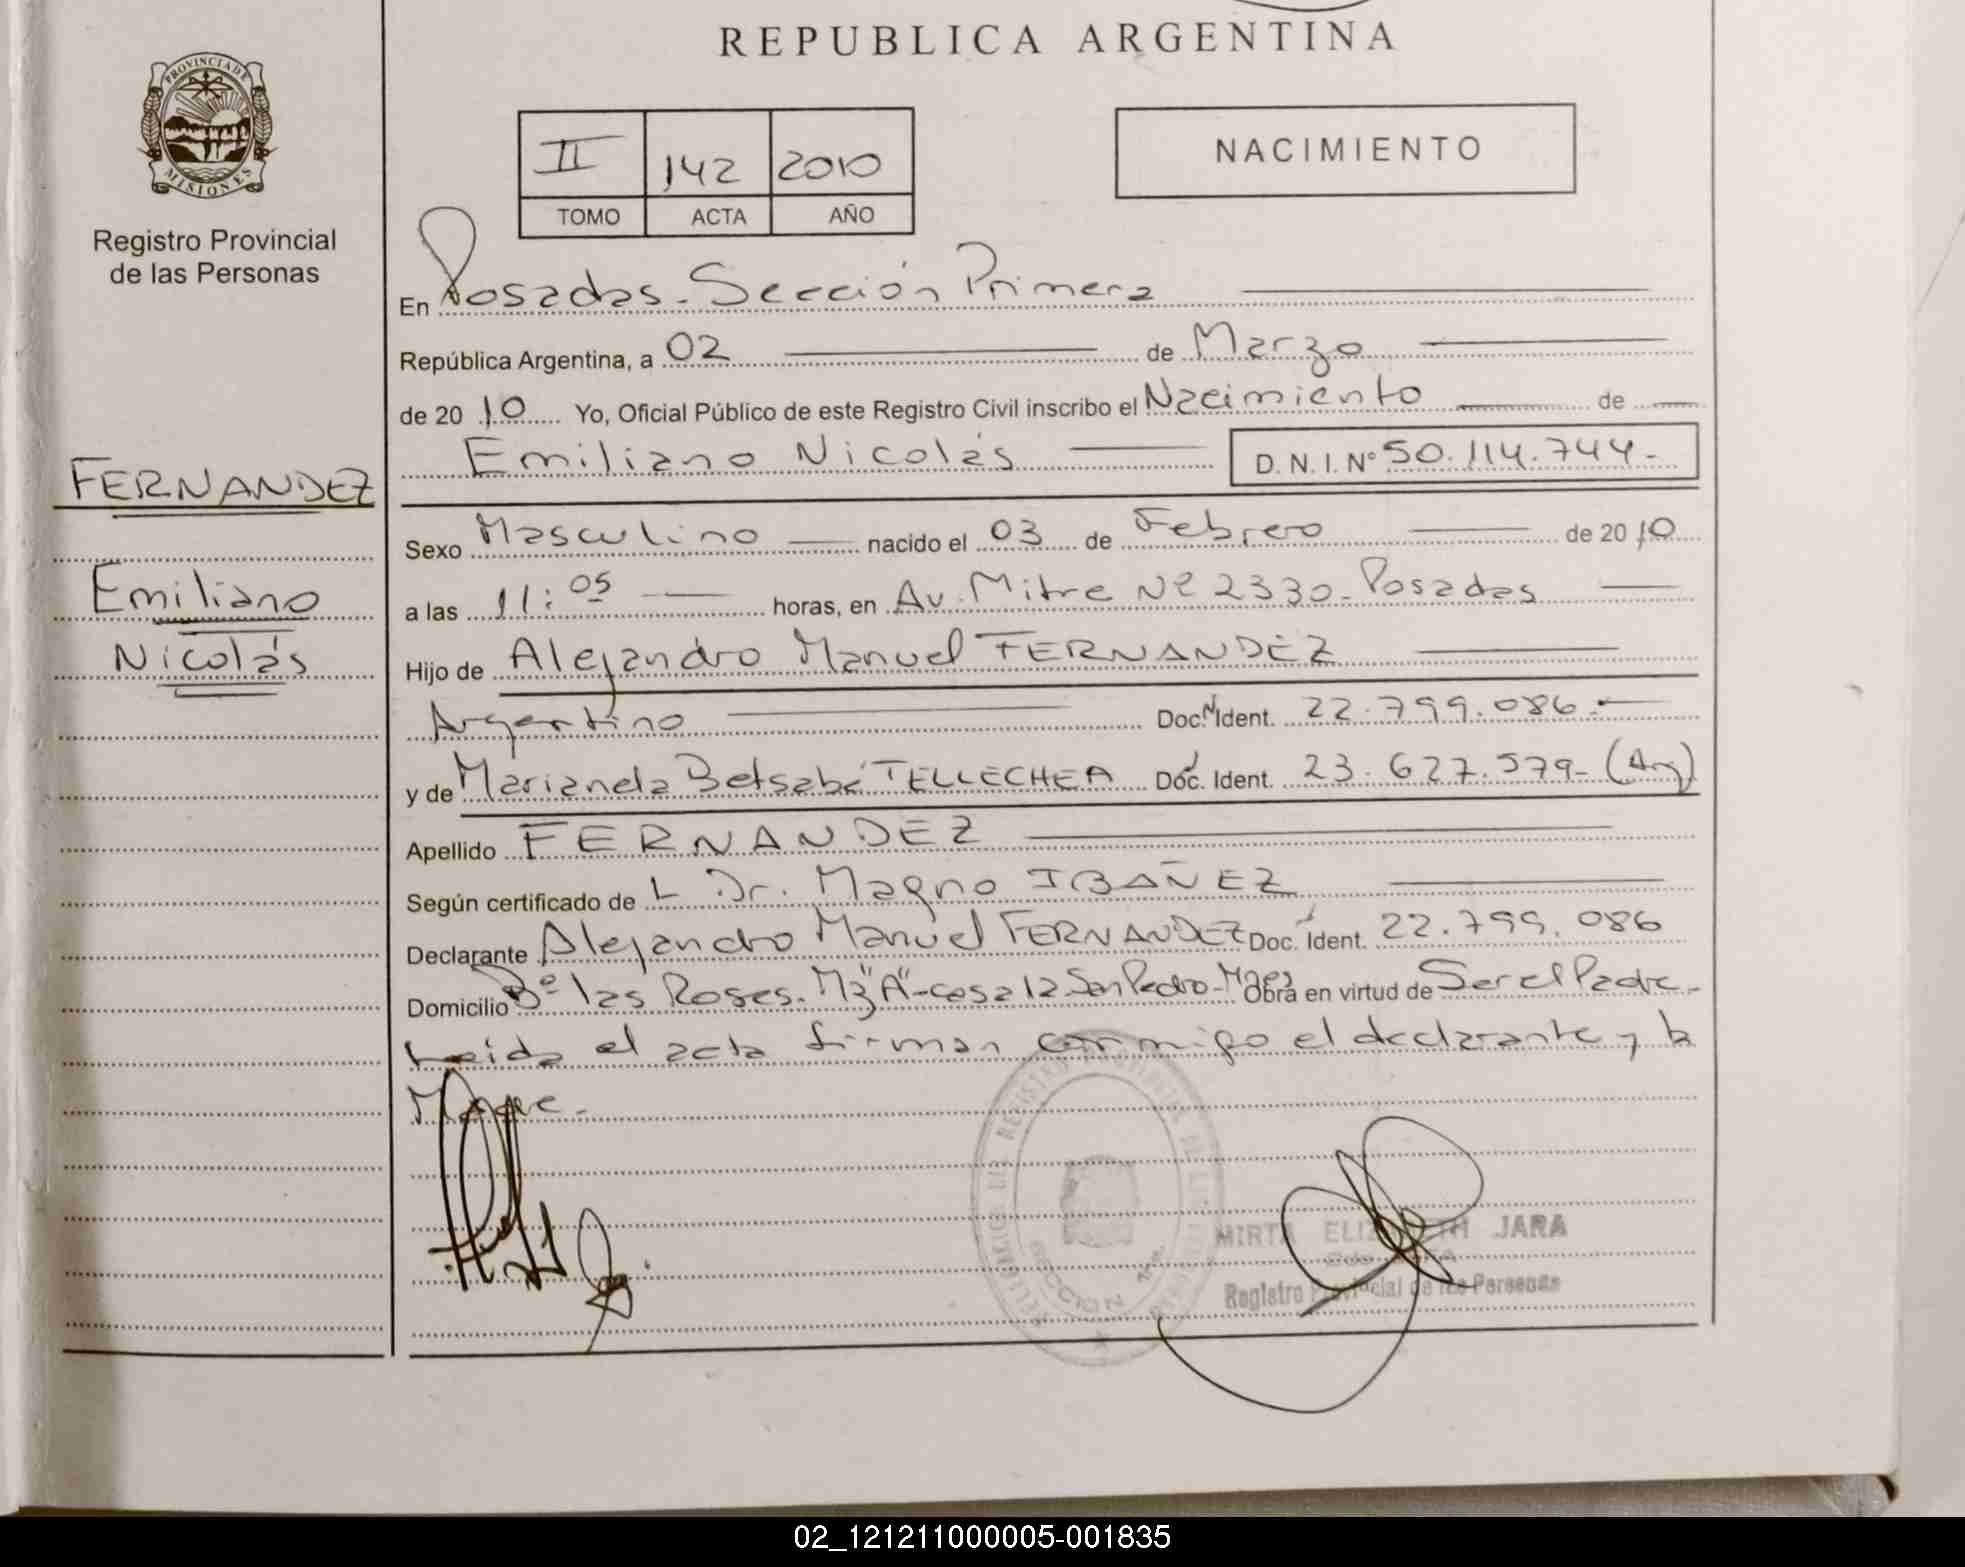 REPUBLICA ARGENTINA
PROVINCIA DE
MISIONES
Registro Provincial
de las Personas
II 142 2010
TOMO ACTA AÑO
NACIMIENTO
En Posadas - Sección Primera
República Argentina, a 02 de Marzo
de 20 10 Yo, Oficial Público de este Registro Civil inscribo el Nacimiento de
Emiliano Nicolás D.N.I. N° 50.114.744-
FERNANDEZ
Emiliano
Nicolás
Sexo Masculino nacido el 03 de Febrero de 20 10
a las 11:05 horas, en Av. Mitre Nº 2330 - Posadas
Hijo de Alejandro Manuel FERNANDEZ
Argentino Doc. N Ident. 22.799.086.-
y de Marianela Betsabé TELLECHEA Doc. Ident. 23.627.579- (Arg)
Apellido FERNANDEZ
Según certificado de L Dr. Magno IBAÑEZ
Declarante Alejandro Manuel FERNANDEZ Doc. Ident. 22.799.086
Domicilio Bº las Rosas. Mz "A" - casa 12 San Pedro - Mnes Obra en virtud de Ser el Padre -
Leida el acta firman conmigo el declarante y la
Madre -
SECCION 1ra.
MIRTA ELIZABETH JARA
Registro Provincial de las Personas
02_121211000005-001835